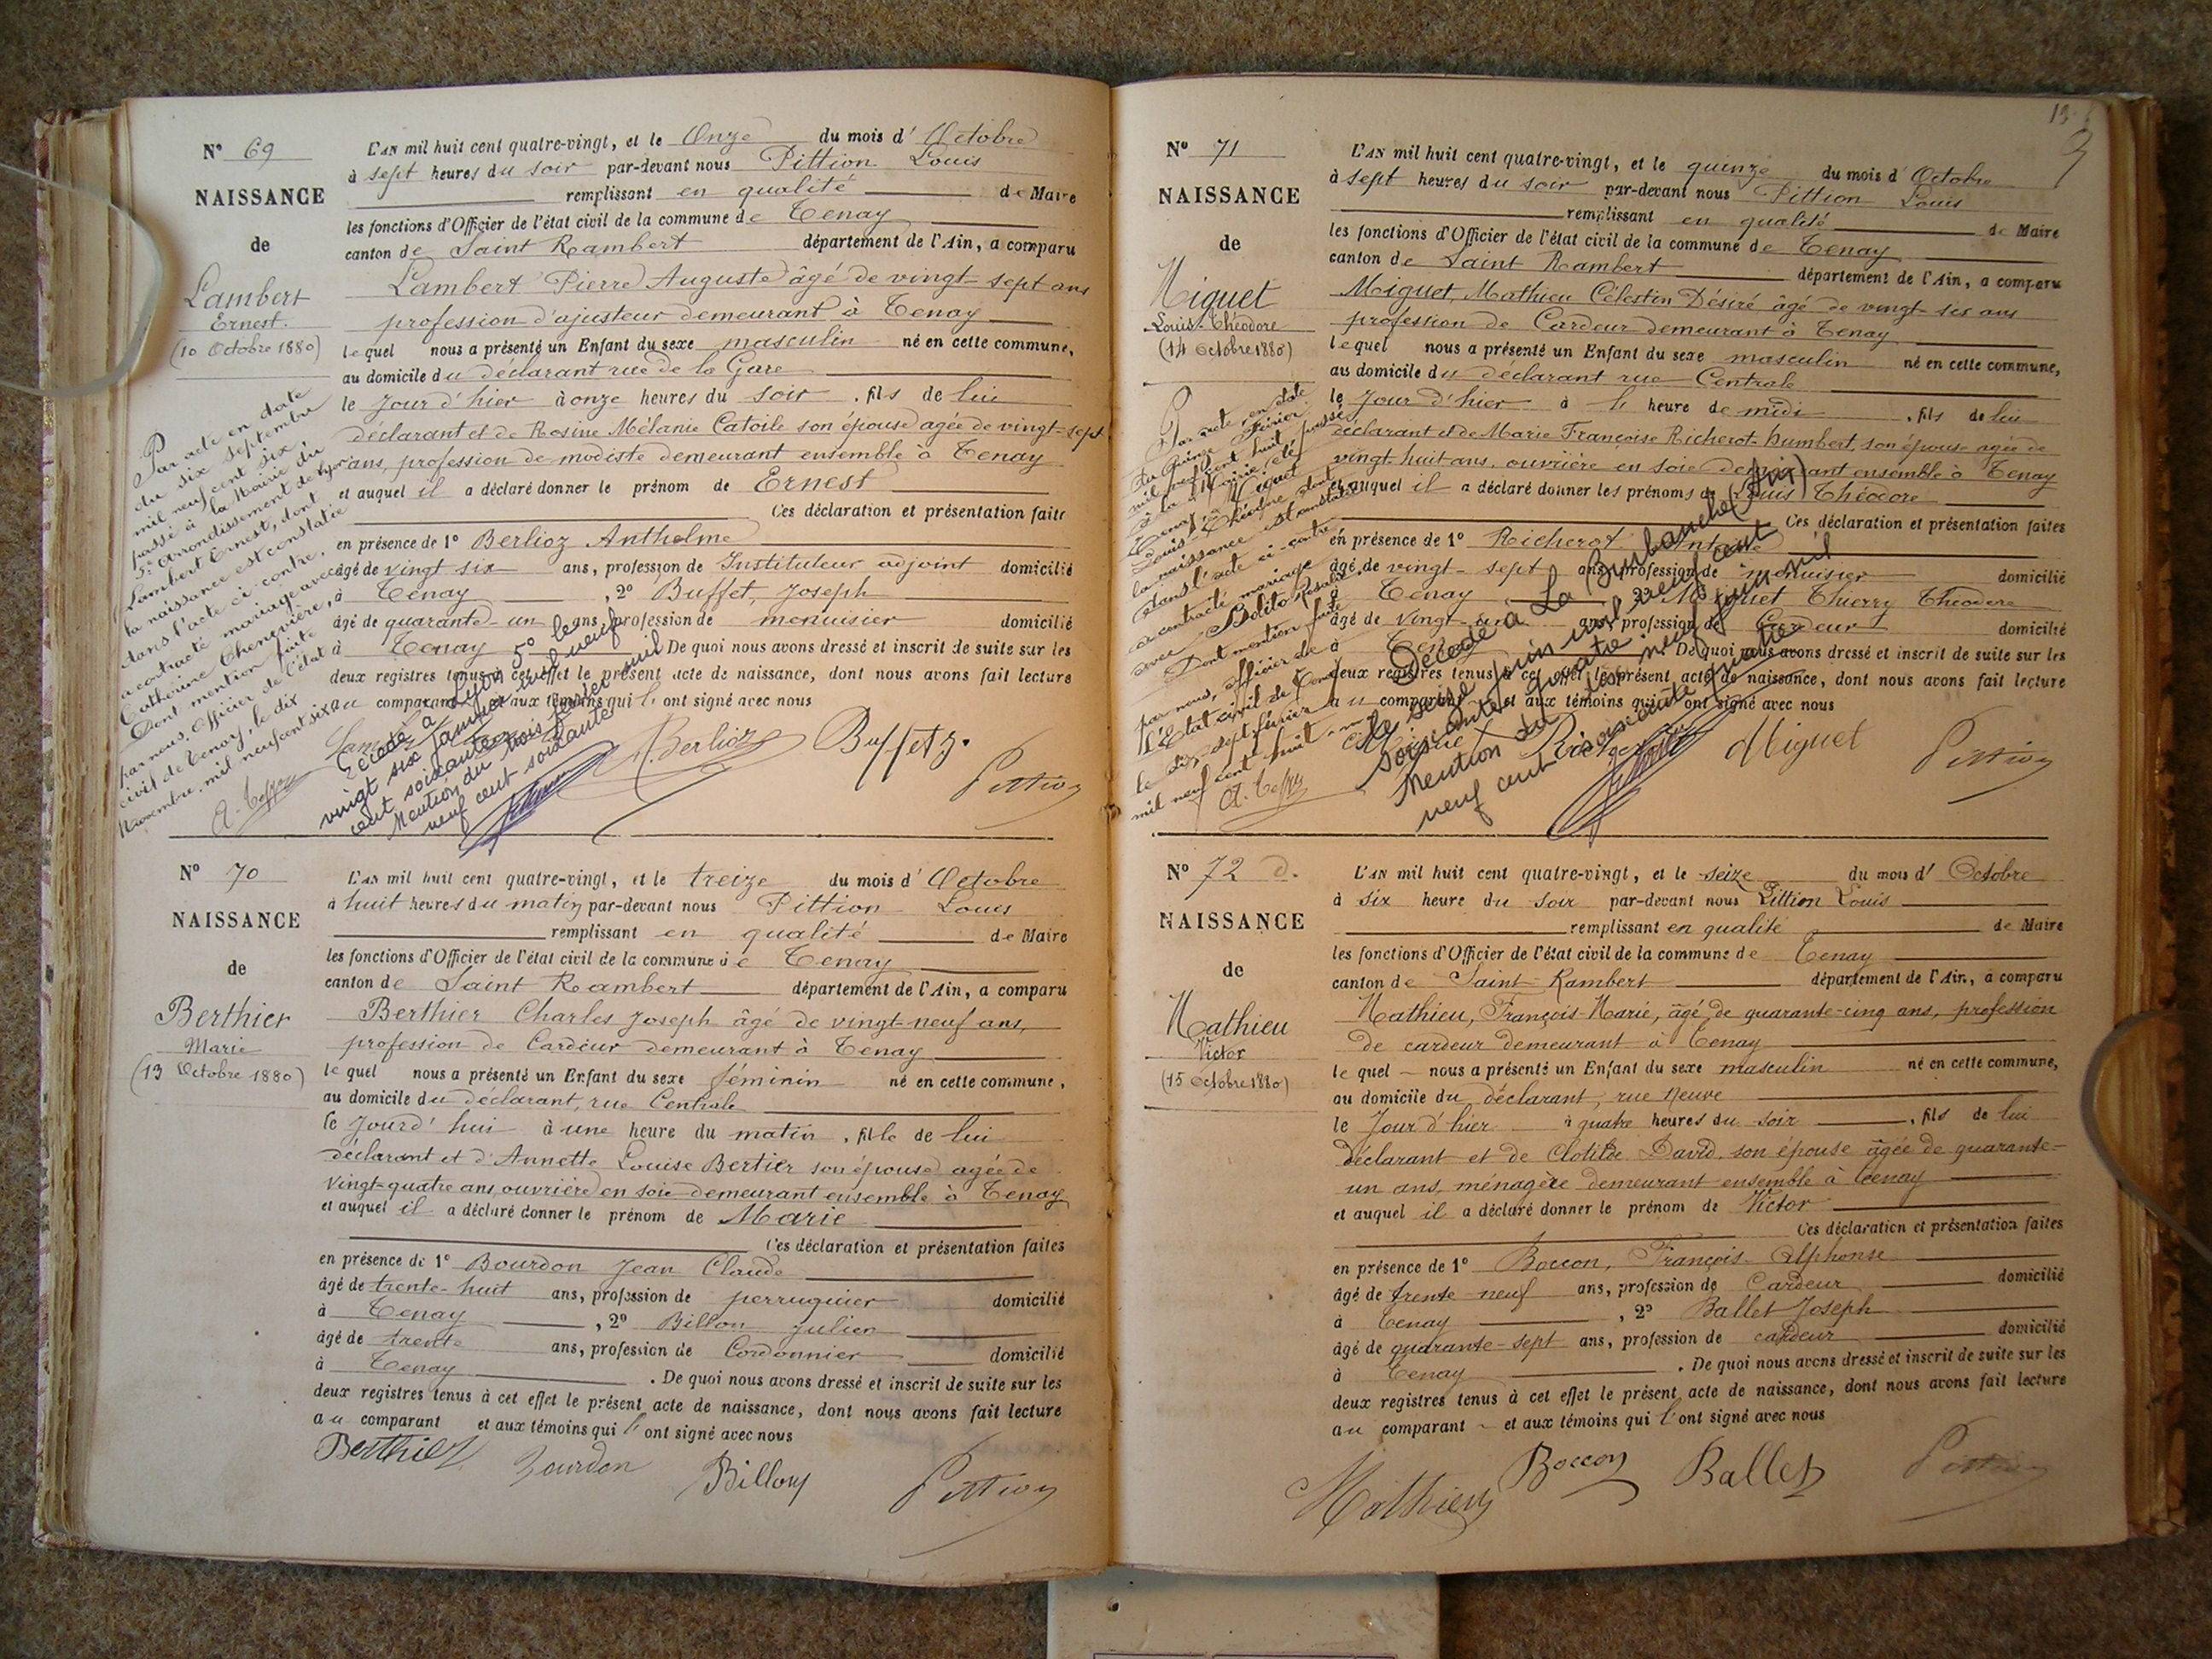 Nº 69
NAISSANCE
de
Lambert
Ernest.
(10 Octobre 1880)
Par acte en date
du six septembre
mil neuf cent six
passé à la Mairie du
5e arrondissement de Lyon
Lambert Ernest, dont
la naissance est constatée
dans l'acte ci-contre,
a contracté mariage avec
Catherine Chenevière,
Dont mention faite
par nous, Officier de l'état
civil de Tenay, le dix
Novembre mil neuf cent six
L'AN mil huit cent quatre-vingt, et le Onze du mois d'Octobre
à sept heures du soir par-devant nous Pittion Louis
remplissant en qualité de Maire
les fonctions d'Officier de l'état civil de la commune de Tenay
canton de Saint Rambert département de l'Ain, a comparu
Lambert Pierre Auguste âgé de vingt-sept ans
profession d'ajusteur demeurant à Tenay
lequel nous a présenté un Enfant du sexe masculin né en cette commune,
au domicile du déclarant rue de la Gare
le jour d'hier à onze heures du soir, fils de lui
déclarant et de Rosine Mélanie Catoile son épouse agée de vingt-sept
ans, profession de modiste demeurant ensemble à Tenay
et auquel il a déclaré donner le prénom de Ernest
Ces déclaration et présentation faite
en présence de 1º Berlioz Anthelme
âgé de vingt six ans, profession de Instituteur adjoint domicilié
à Tenay, 2º Buffet, Joseph
âgé de quarante-un ans, profession de menuisier domicilié
à Tenay De quoi nous avons dressé et inscrit de suite sur les
deux registres tenus à cet effet le présent acte de naissance, dont nous avons fait lecture
au comparant et aux témoins qui l'ont signé avec nous
Décédé à Lyon 5º le
vingt six janvier mil neuf
cent soixante
Mention du trois février mil
neuf cent soixante
Berlioz Buffet J. Pittion
Nº 70
NAISSANCE
de
Berthier
Marie
(13 Octobre 1880)
L'AN mil huit cent quatre-vingt, et le treize du mois d'Octobre
à huit heures du matin par-devant nous Pittion Louis
remplissant en qualité de Maire
les fonctions d'Officier de l'état civil de la commune de Tenay
canton de Saint Rambert département de l'Ain, a comparu
Berthier Charles Joseph âgé de vingt-neuf ans,
profession de Cardeur demeurant à Tenay
lequel nous a présenté un Enfant du sexe féminin né en cette commune,
au domicile du déclarant, rue Centrale
le jourd'hui à une heure du matin, fille de lui
déclarant et d'Annette Louise Bertier son épouse agée de
vingt-quatre ans, ouvrière en soie demeurant ensemble à Tenay
et auquel il a déclaré donner le prénom de Marie
Ces déclaration et présentation faites
en présence de 1º Bourdon Jean Claude
âgé de trente-huit ans, profession de perruquier domicilié
à Tenay, 2º Billon Julien
âgé de trente ans, profession de Cordonnier domicilié
à Tenay. De quoi nous avons dressé et inscrit de suite sur les
deux registres tenus à cet effet le présent acte de naissance, dont nous avons fait lecture
au comparant et aux témoins qui l'ont signé avec nous
Berthier Bourdon Billon Pittion
Nº 71
NAISSANCE
de
Miguet
Louis-Théodore
(14 Octobre 1880)
Par acte en date
du Quinze Février
mil neuf cent huit passé
à la Mairie de
Tenay, Miguet
Louis-Théodore dont
la naissance
dans l'acte ci-contre
a contracté mariage
avec
Dont mention faite
par nous, officier de
l'Etat civil de Tenay
le dix sept février
mil neuf cent huit
L'AN mil huit cent quatre-vingt, et le quinze du mois d'Octobre
à sept heures du soir par-devant nous Pittion Louis
remplissant en qualité de Maire
les fonctions d'Officier de l'état civil de la commune de Tenay
canton de Saint Rambert département de l'Ain, a comparu
Miguet, Mathieu Célestin Désiré âgé de vingt-six ans
profession de Cardeur demeurant à Tenay
lequel nous a présenté un Enfant du sexe masculin né en cette commune,
au domicile du déclarant rue Centrale
le Jour d'hier à l' heure de midi, fils de lui
déclarant et de Marie Françoise Richerot-humbert, son épouse agée de
vingt-huit ans, ouvrière en soie demeurant ensemble à Tenay
et auquel il a déclaré donner les prénoms de Louis Théodore
Ces déclaration et présentation faites
en présence de 1º Richerot
âgé de vingt-sept ans, profession de menuisier domicilié
à Tenay 2º Miguet Thierry Théodore
âgé de vingt-un ans, profession de Cardeur domicilié
à Tenay De quoi nous avons dressé et inscrit de suite sur les
deux registres tenus à cet effet le présent acte de naissance, dont nous avons fait lecture
au comparant et aux témoins qui l'ont signé avec nous
Décédé à La Burbanche (Ain)
le seize juin mil neuf cent
soixante quatre
Mention du dix neuf juin mil
neuf cent soixante quatre
Miguet Pittion
Nº 72
NAISSANCE
de
Mathieu
Victor
(15 Octobre 1880)
L'AN mil huit cent quatre-vingt, et le seize du mois d'Octobre
à six heure du soir par-devant nous Pittion Louis
remplissant en qualité de Maire
les fonctions d'Officier de l'état civil de la commune de Tenay
canton de Saint-Rambert département de l'Ain, a comparu
Mathieu, François-Marie, âgé de quarante-cinq ans, profession
de cardeur demeurant à Tenay
lequel nous a présenté un Enfant du sexe masculin né en cette commune,
au domicile du déclarant, rue Neuve
le Jour d'hier à quatre heures du soir, fils de lui
déclarant et de Clotilde David son épouse âgée de quarante-
un ans, ménagère demeurant ensemble à Tenay
et auquel il a déclaré donner le prénom de Victor
Ces déclaration et présentation faites
en présence de 1º Boccon, François-Alphonse
âgé de trente-neuf ans, profession de Cardeur domicilié
à Tenay, 2º Ballet Joseph
âgé de quarante-sept ans, profession de cardeur domicilié
à Tenay. De quoi nous avons dressé et inscrit de suite sur les
deux registres tenus à cet effet le présent acte de naissance, dont nous avons fait lecture
au comparant et aux témoins qui l'ont signé avec nous
Mathieu Boccon Ballet Pittion